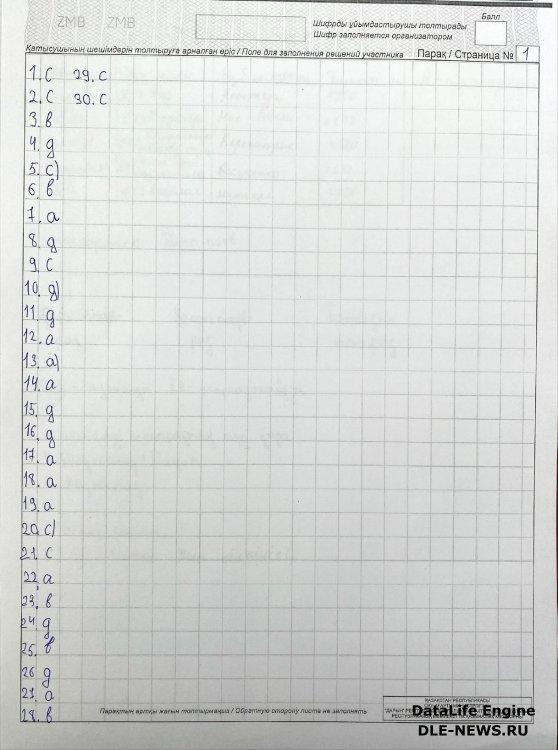 ZMB ZMB
Шифрды ұйымдастырушы толтырады
Шифр заполняется организатором
Балл
Қатысушының шешімдерін толтыруға арналған өріс / Поле для заполнения решений участника
Парақ / Страница № 1
1. с 29. с
2. с 30. с
3. в
4. д
5. с)
6. в
7. а
8. д
9. с
10. д)
11. д
12. а
13. а)
14. а
15. д
16. д
17. а
18. а
19. а
20. с)
21. с
22. а
23. в
24. д
25. в
26 д
27. а
28. в
Парақтың артқы жағын толтырмаңыз / Обратную сторону листа не заполнять
ҚАЗАҚСТАН РЕСПУБЛИКАСЫ
DataLife Engine
DLE-NEWS.RU